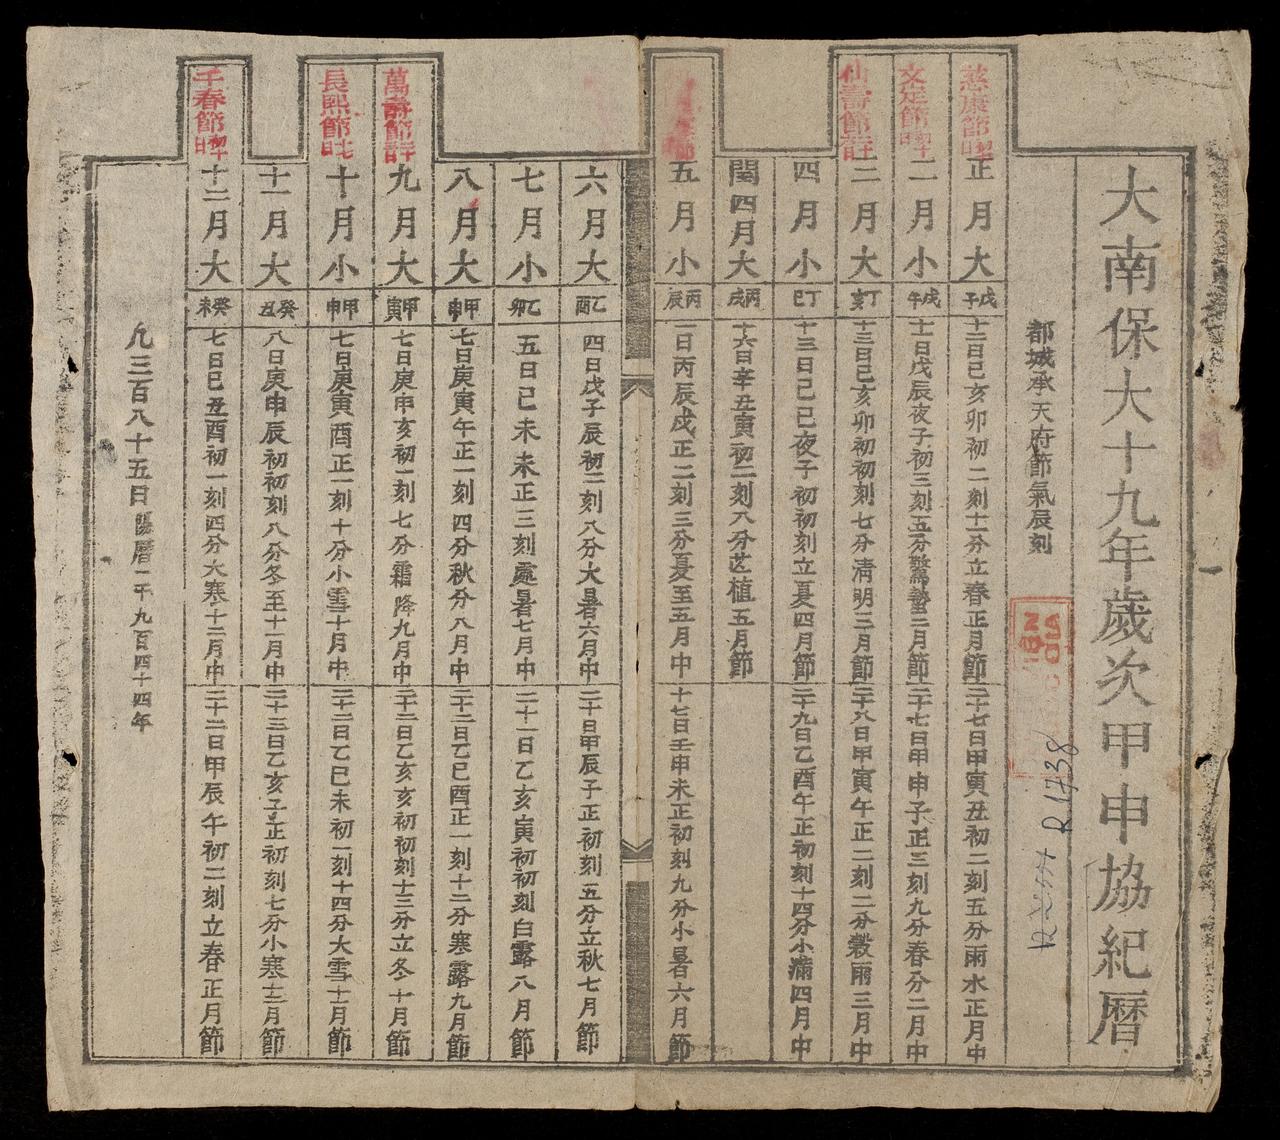 大南保大十九年歲次甲申協紀曆
都城承天府節氣辰刻
慈康節
正月大
戊子
十二日己亥卯初二刻十二分立春正月節
二十七日甲寅丑初二刻五分雨水正月中
二月小
戊午
十二日戊辰夜子初三刻五分驚蟄二月節
二十七日甲申子正三刻九分春分二月中
仙壽節
三月大
丁亥
十三日己亥卯初初刻七分清明三月節
二十八日甲寅午正二刻二分穀雨三月中
四月小
丁巳
十三日己巳夜子初初刻立夏四月節
二十九日乙酉午正初刻十四分小滿四月中
閏四月大
丙戌
十六日辛丑寅初二刻八分芒植五月節
五月小
丙辰
一日丙辰戌正二刻三分夏至五月中
十七日壬申未正初刻九分小暑六月節
六月大
乙酉
四日戊子辰初二刻八分大暑六月中
二十日甲辰子正初刻五分立秋七月節
七月小
乙卯
五日己未未正三刻處暑七月中
二十一日乙亥寅初初刻白露八月節
八月大
甲申
七日庚寅午正一刻四分秋分八月中
二十二日乙巳酉正一刻十二分寒露九月節
萬壽節
九月大
甲寅
七日庚申亥初一刻七分霜降九月中
二十二日乙亥亥初初刻十三分立冬十月節
長熙節
十月小
甲申
七日庚寅酉正一刻十分小雪十月中
二十二日乙巳未初一刻十四分大雪十一月節
十一月大
癸丑
八日庚申辰初初刻八分冬至十一月中
二十三日乙亥子正初刻七分小寒十二月節
千春節
十二月大
癸未
七日己丑酉初一刻四分大寒十二月中
二十二日甲辰午初二刻立春正月節
凢三百八十五日陽曆一千九百四十四年
R 1738